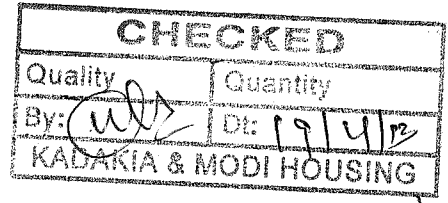 CHECKED
Quality Quantity
By: Dt: 19/4/12
KADAKIA & MODI HOUSING